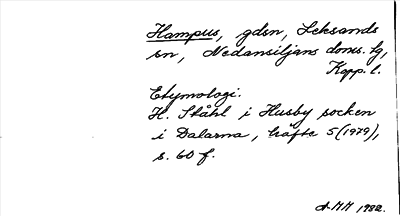 Hampus, gdsn, Leksands
sn, Nedansiljans doms. tg,
Kopp. l.
Etymologi.
H. Ståhl i Husby socken
i Dalarna, häfte 5 (1979),
s. 60 f.
AMM 1982.